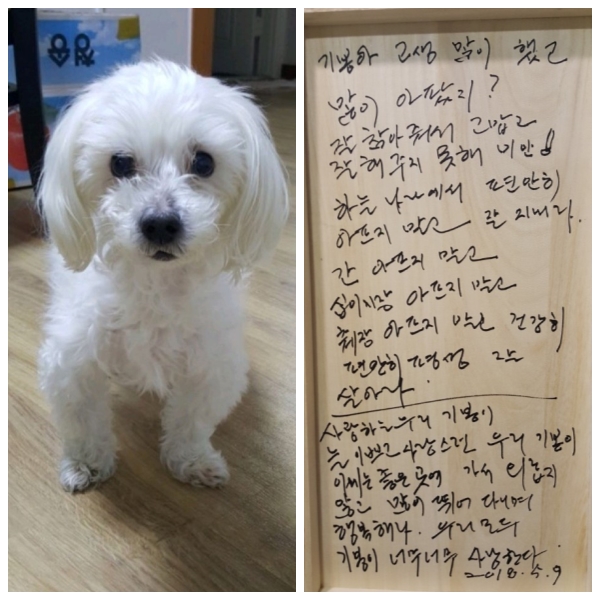 기봉아 고생 많이 했고
많이 아팠지?
잘 참아줘서 고맙고
잘해주지 못해 미안!
하늘나라에서 편안히
아프지 말고 잘 지내라.
간 아프지 말고
심이지장 아프지 말고
췌장 아프지 말고 건강히
편안히 평생
살아라
사랑하는 우리 기봉이
늘 이쁘고 사랑스런 우리 기봉이
이제는 좋은 곳에 가서 외롭지
않고 많이 뛰어 다니며
행복해라. 우리 모두
기봉이 너무너무 사랑한다.
2018.5.9